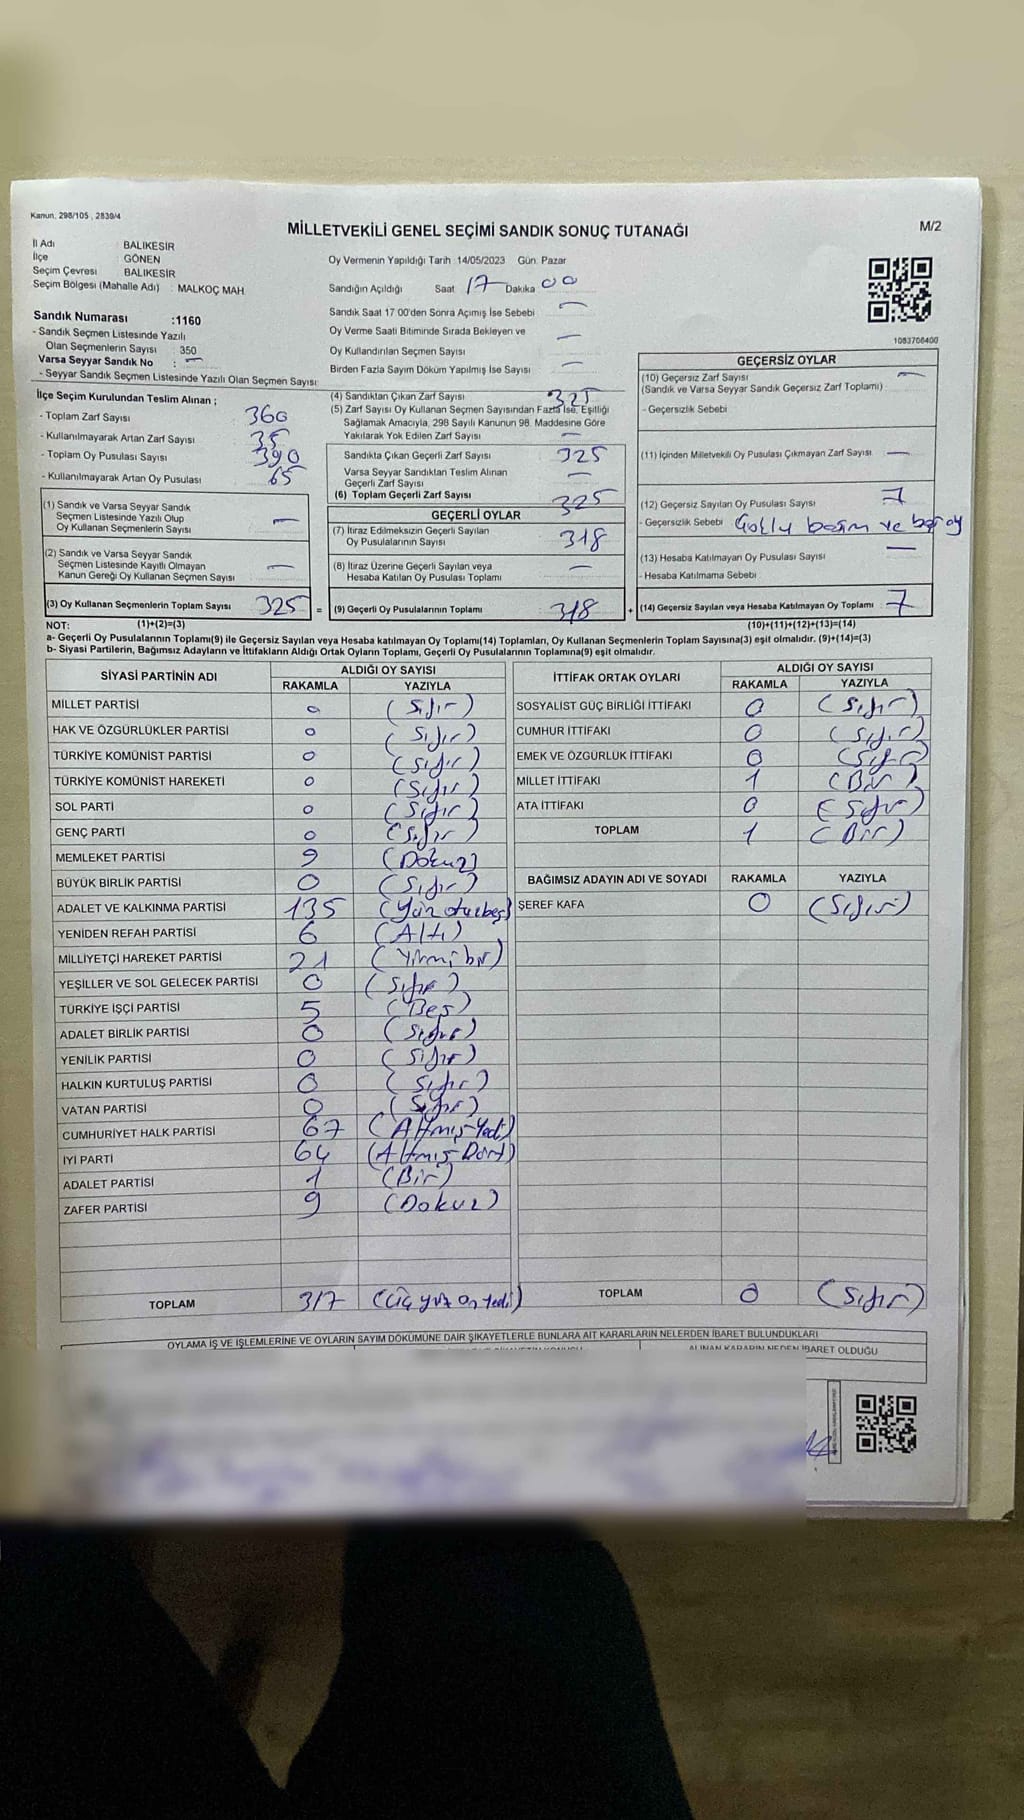 Kanun, 298/105 , 2839/4
MİLLETVEKİLİ GENEL SEÇİMİ SANDIK SONUÇ TUTANAĞI
M/2
İl Adı : BALIKESİR
İlçe : GÖNEN
Seçim Çevresi : BALIKESİR
Seçim Bölgesi (Mahalle Adı) : MALKOÇ MAH.
Sandık Numarası :1160
- Sandık Seçmen Listesinde Yazılı
Olan Seçmenlerin Sayısı : 350
Varsa Seyyar Sandık No : —
- Seyyar Sandık Seçmen Listesinde Yazılı Olan Seçmen Sayısı:
Oy Vermenin Yapıldığı Tarih 14/05/2023 Gün: Pazar
Sandığın Açıldığı Saat 17 Dakika 00
Sandık Saat 17 00'den Sonra Açımış İse Sebebi —
Oy Verme Saati Bitiminde Sırada Bekleyen ve
Oy Kullandırılan Seçmen Sayısı —
Birden Fazla Sayım Döküm Yapılmış İse Sayısı —
1083706400
İlçe Seçim Kurulundan Teslim Alınan ;
- Toplam Zarf Sayısı 360
- Kullanılmayarak Artan Zarf Sayısı 35
- Toplam Oy Pusulası Sayısı 390
- Kullanılmayarak Artan Oy Pusulası 65
(1) Sandık ve Varsa Seyyar Sandık
Seçmen Listesinde Yazılı Olup
Oy Kullanan Seçmenlerin Sayısı —
(2) Sandık ve Varsa Seyyar Sandık
Seçmen Listesinde Kayıtlı Olmayan
Kanun Gereği Oy Kullanan Seçmen Sayısı —
(3) Oy Kullanan Seçmenlerin Toplam Sayısı 325 =
(4) Sandıktan Çıkan Zarf Sayısı 325
(5) Zarf Sayısı Oy Kullanan Seçmen Sayısından Fazla İse, Eşitliği
Sağlamak Amacıyla, 298 Sayılı Kanunun 98. Maddesine Göre
Yakılarak Yok Edilen Zarf Sayısı —
Sandıkta Çıkan Geçerli Zarf Sayısı 325
Varsa Seyyar Sandıktan Teslim Alınan
Geçerli Zarf Sayısı —
(6) Toplam Geçerli Zarf Sayısı 325
GEÇERLİ OYLAR
(7) İtiraz Edilmeksizin Geçerli Sayılan
Oy Pusulalarının Sayısı 318
(8) İtiraz Üzerine Geçerli Sayılan veya
Hesaba Katılan Oy Pusulası Toplamı —
(9) Geçerli Oy Pusulalarının Toplamı 318 +
GEÇERSİZ OYLAR
(10) Geçersiz Zarf Sayısı —
(Sandık ve Varsa Seyyar Sandık Geçersiz Zarf Toplamı)
- Geçersizlik Sebebi
(11) İçinden Milletvekili Oy Pusulası Çıkmayan Zarf Sayısı —
(12) Geçersiz Sayılan Oy Pusulası Sayısı 7
- Geçersizlik Sebebi ve boş oy
(13) Hesaba Katılmayan Oy Pusulası Sayısı —
- Hesaba Katılmama Sebebi
(14) Geçersiz Sayılan veya Hesaba Katılmayan Oy Toplamı : 7
NOT: (1)+(2)=(3) (10)+(11)+(12)+(13)=(14)
a- Geçerli Oy Pusulalarının Toplamı(9) ile Geçersiz Sayılan veya Hesaba katılmayan Oy Toplamı(14) Toplamları, Oy Kullanan Seçmenlerin Toplam Sayısına(3) eşit olmalıdır. (9)+(14)=(3)
b- Siyasi Partilerin, Bağımsız Adayların ve İttifakların Aldığı Ortak Oyların Toplamı, Geçerli Oy Pusulalarının Toplamına(9) eşit olmalıdır.
SİYASİ PARTİNİN ADI ALDIĞI OY SAYISI
RAKAMLA YAZIYLA
MİLLET PARTİSİ 0 (Sıfır)
HAK VE ÖZGÜRLÜKLER PARTİSİ 0 (Sıfır)
TÜRKİYE KOMÜNİST PARTİSİ 0 (Sıfır)
TÜRKİYE KOMÜNİST HAREKETİ 0 (Sıfır)
SOL PARTİ 0 (Sıfır)
GENÇ PARTİ 0 (Sıfır)
MEMLEKET PARTİSİ 9 (Dokuz)
BÜYÜK BİRLİK PARTİSİ 0 (Sıfır)
ADALET VE KALKINMA PARTİSİ 135 (Yüz otuzbeş)
YENİDEN REFAH PARTİSİ 6 (Altı)
MİLLİYETÇİ HAREKET PARTİSİ 21 (Yirmi bir)
YEŞİLLER VE SOL GELECEK PARTİSİ 0 (Sıfır)
TÜRKİYE İŞÇİ PARTİSİ 5 (Beş)
ADALET BİRLİK PARTİSİ 0 (Sıfır)
YENİLİK PARTİSİ 0 (Sıfır)
HALKIN KURTULUŞ PARTİSİ 0 (Sıfır)
VATAN PARTİSİ 0 (Sıfır)
CUMHURİYET HALK PARTİSİ 67 (Altmış Yedi)
İYİ PARTİ 64 (Altmış Dört)
ADALET PARTİSİ 1 (Bir)
ZAFER PARTİSİ 9 (Dokuz)
TOPLAM 317 (Üç yüz on yedi)
İTTİFAK ORTAK OYLARI ALDIĞI OY SAYISI
RAKAMLA YAZIYLA
SOSYALİST GÜÇ BİRLİĞİ İTTİFAKI 0 (Sıfır)
CUMHUR İTTİFAKI 0 (Sıfır)
EMEK VE ÖZGÜRLÜK İTTİFAKI 0 (Sıfır)
MİLLET İTTİFAKI 1 (Bir)
ATA İTTİFAKI 0 (Sıfır)
TOPLAM 1 (Bir)
BAĞIMSIZ ADAYIN ADI VE SOYADI RAKAMLA YAZIYLA
ŞEREF KAFA 0 (Sıfır)
TOPLAM 0 (Sıfır)
OYLAMA İŞ VE İŞLEMLERİNE VE OYLARIN SAYIM DÖKÜMÜNE DAİR ŞİKAYETLERLE BUNLARA AİT KARARLARIN NELERDEN İBARET BULUNDUKLARI
ALINAN KARARIN NEDEN İBARET OLDUĞU